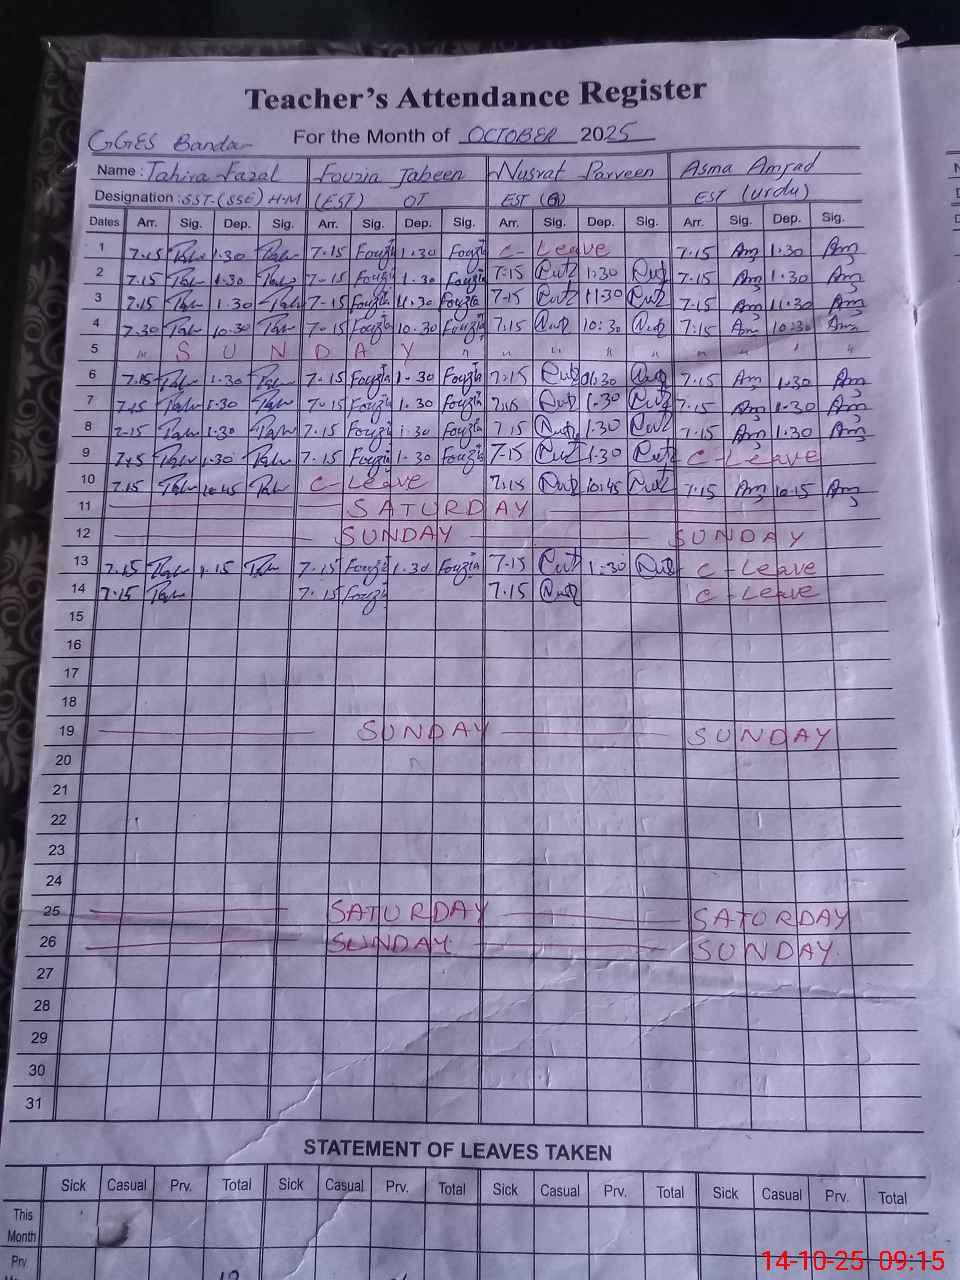 Teacher's Attendance Register
GGES Banda For the Month of OCTOBER 2025
Name: Tahira Fazal Fouzia Jabeen Nusrat Parveen Asma Amjad
Designation: SST-(SSE) H-M (EST) OT EST EST (urdu)
Dates Arr. Sig. Dep. Sig. Arr. Sig. Dep. Sig. Arr. Sig. Dep. Sig. Arr. Sig. Dep. Sig.
1 7.15 1.30 7-15 Fouzia 1.30 Fouzia C-Leave 7.15 Am 1.30 Am
2 7.15 1.30 7-15 Fouzia 1.30 Fouzia 7-15 1.30 7.15 Am 1.30 Am
3 7.15 1.30 7-15 Fouzia 11.30 Fouzia 7-15 11.30 7.15 Am 11.30 Am
4 7.30 10.30 7-15 Fouzia 10.30 Fouzia 7.15 10:30 7:15 Am 10:30 Am
5 " SUNDAY " " " " " " " " "
6 7.15 1.30 7-15 Fouzia 1.30 Fouzia 7:15 01:30 7.15 Am 1.30 Am
7 7.15 1.30 7-15 Fouzia 1.30 Fouzia 7.15 1.30 7.15 Am 1.30 Am
8 7.15 1.30 7.15 Fouzia 1.30 Fouzia 7.15 1.30 7.15 Am 1.30 Am
9 7.15 1.30 7.15 Fouzia 1.30 Fouzia 7-15 1.30 C-Leave
10 7.15 10.45 C-Leave 7.15 10.45 7.15 Am 10.15 Am
11 SATURDAY
12 SUNDAY SUNDAY
13 7.15 1.15 7.15 Fouzia 1.30 Fouzia 7-15 1.30 C-Leave
14 7.15 7.15 Fouzia 7.15 C-Leave
15
16
17
18
19 SUNDAY SUNDAY
20
21
22
23
24
25 SATURDAY SATURDAY
26 SUNDAY SUNDAY
27
28
29
30
31
STATEMENT OF LEAVES TAKEN
Sick Casual Prv. Total Sick Casual Prv. Total Sick Casual Prv. Total Sick Casual Prv. Total
This
Month
Prv.
14-10-25 09:15